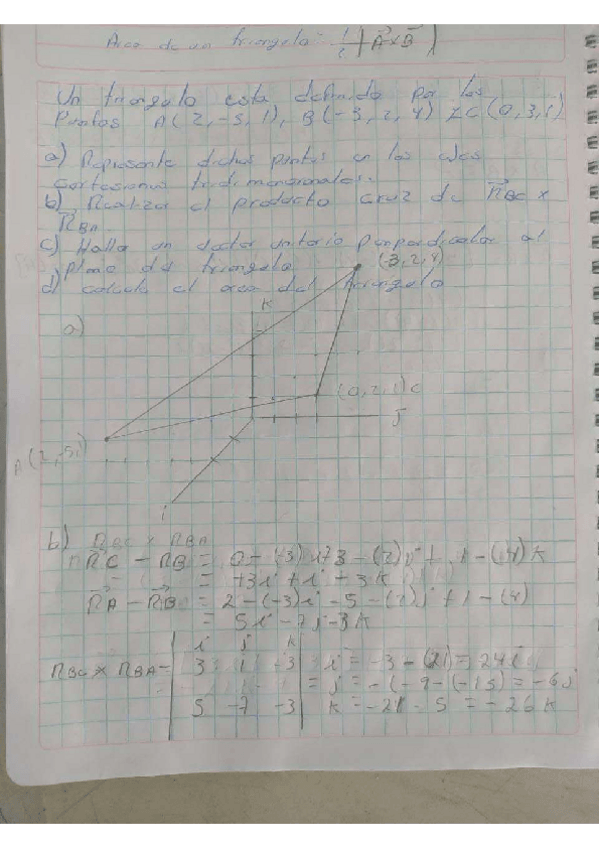 Area de un triangulo = 1/2 |A x B|
Un triangulo esta definido por los
Puntos A(2,-5,1), B(-3,2,4) y C(0,3,1)
a) Represente dichos puntos en los ejes
cartesianos tridimensionales.
b) Realizar el producto cruz de RBC x
RBA
c) Halla un vector unitario perpendicular al
plano del triangulo
d) calcula el area del triangulo
(-3,2,4)
K
a)
(0,2,1) C
J
A(2,-5,1)
i
b) RBC x RBA
RC - RB = 0-(-3)i+3-(2)j+1-(4)k
= +3i+j-3k
RA - RB = 2-(-3)i-5-(2)j+1-(4)
= 5i-7j-3k
i j k
RBC x RBA = 3 1 -3 i = -3-(21) = 24i
= j = -(-9-(-15) = -6j
5 -7 -3 k = -21-5 = -26k